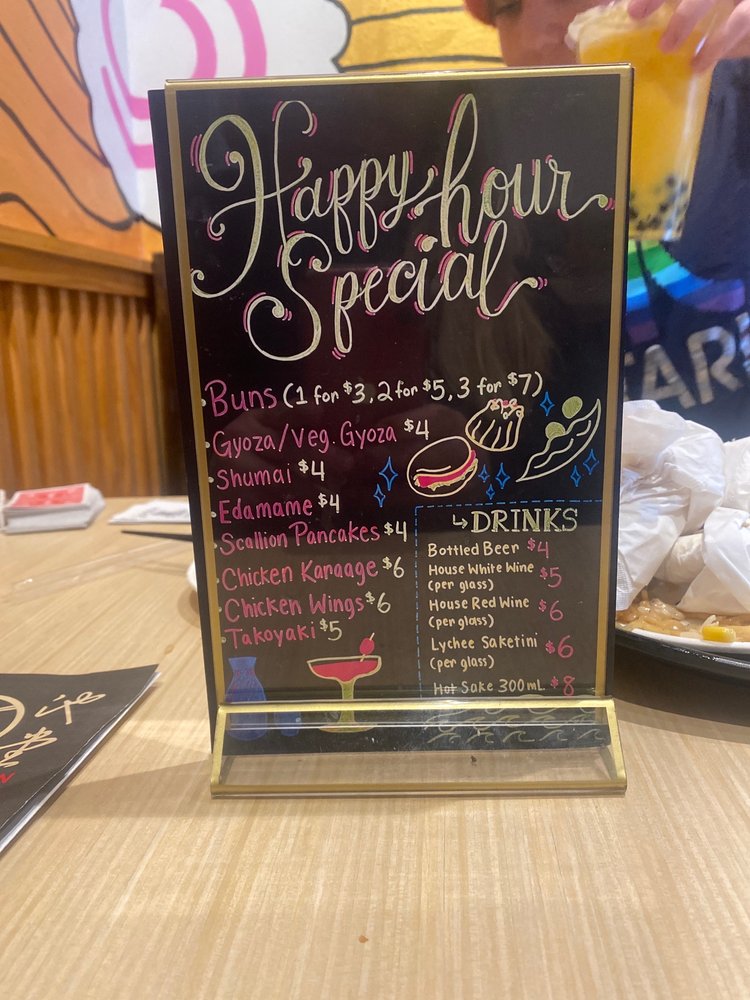 Happy hour
Special
Buns (1 for $3, 2 for $5, 3 for $7)
Gyoza/Veg. Gyoza $4
Shumai $4
Edamame $4
Scallion Pancakes $4
Chicken Karaage $6
Chicken Wings $6
Takoyaki $5
DRINKS
Bottled Beer $4
House White Wine $5
(per glass)
House Red Wine $6
(per glass)
Lychee Saketini $6
(per glass)
Hot Sake 300mL $8